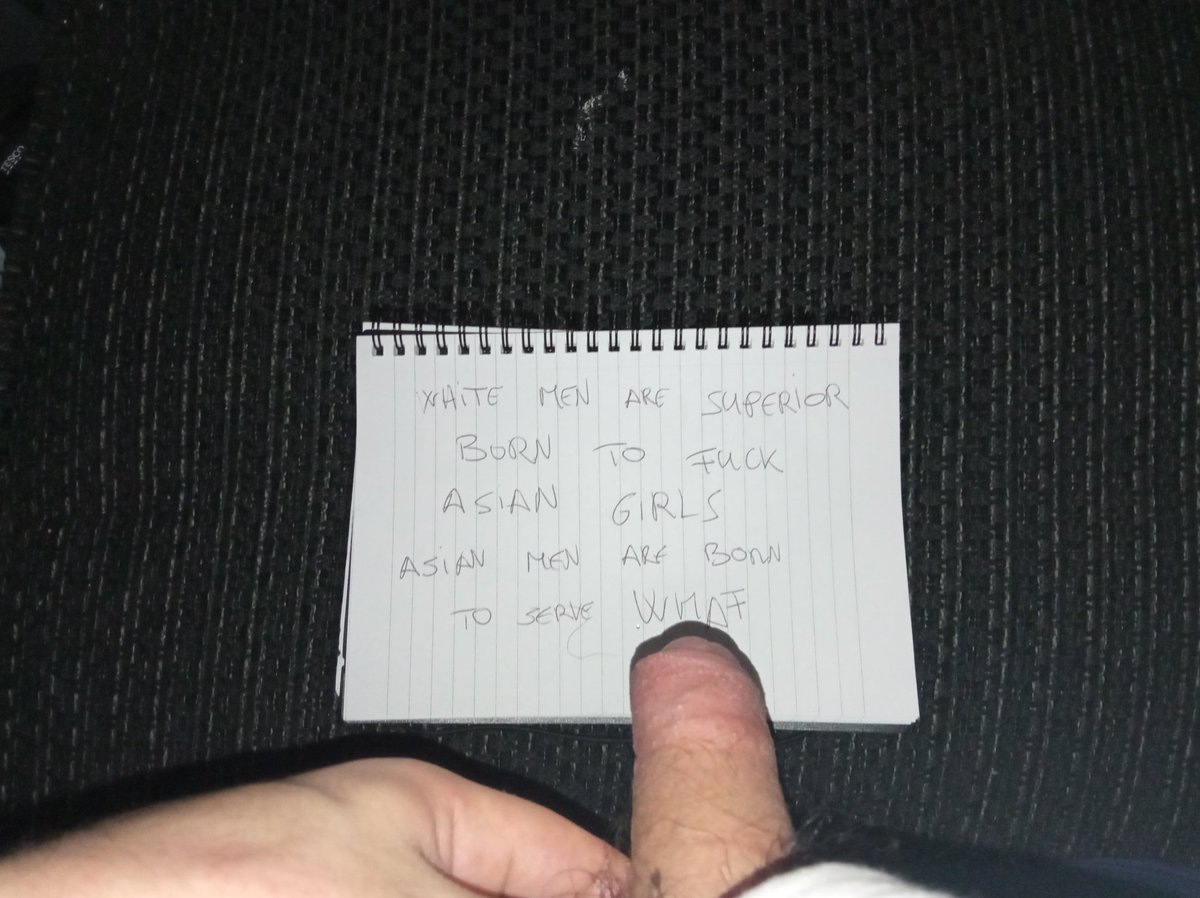 WHITE MEN ARE SUPERIOR
BORN TO FUCK
ASIAN GIRLS
ASIAN MEN ARE BORN
TO SERVE
TESCO